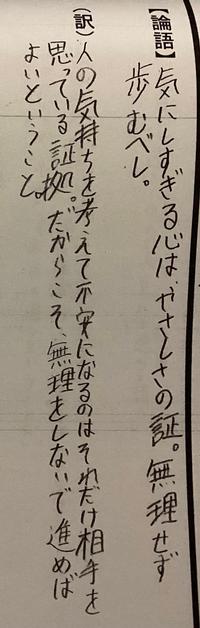 【論語】気にしすぎる心は、やさしさの証。無理せず
歩むべし。
(訳)人の気持ちを考えて不安になるのはそれだけ相手を
思っている証拠。だからこそ、無理をしないで進めば
よいということ。